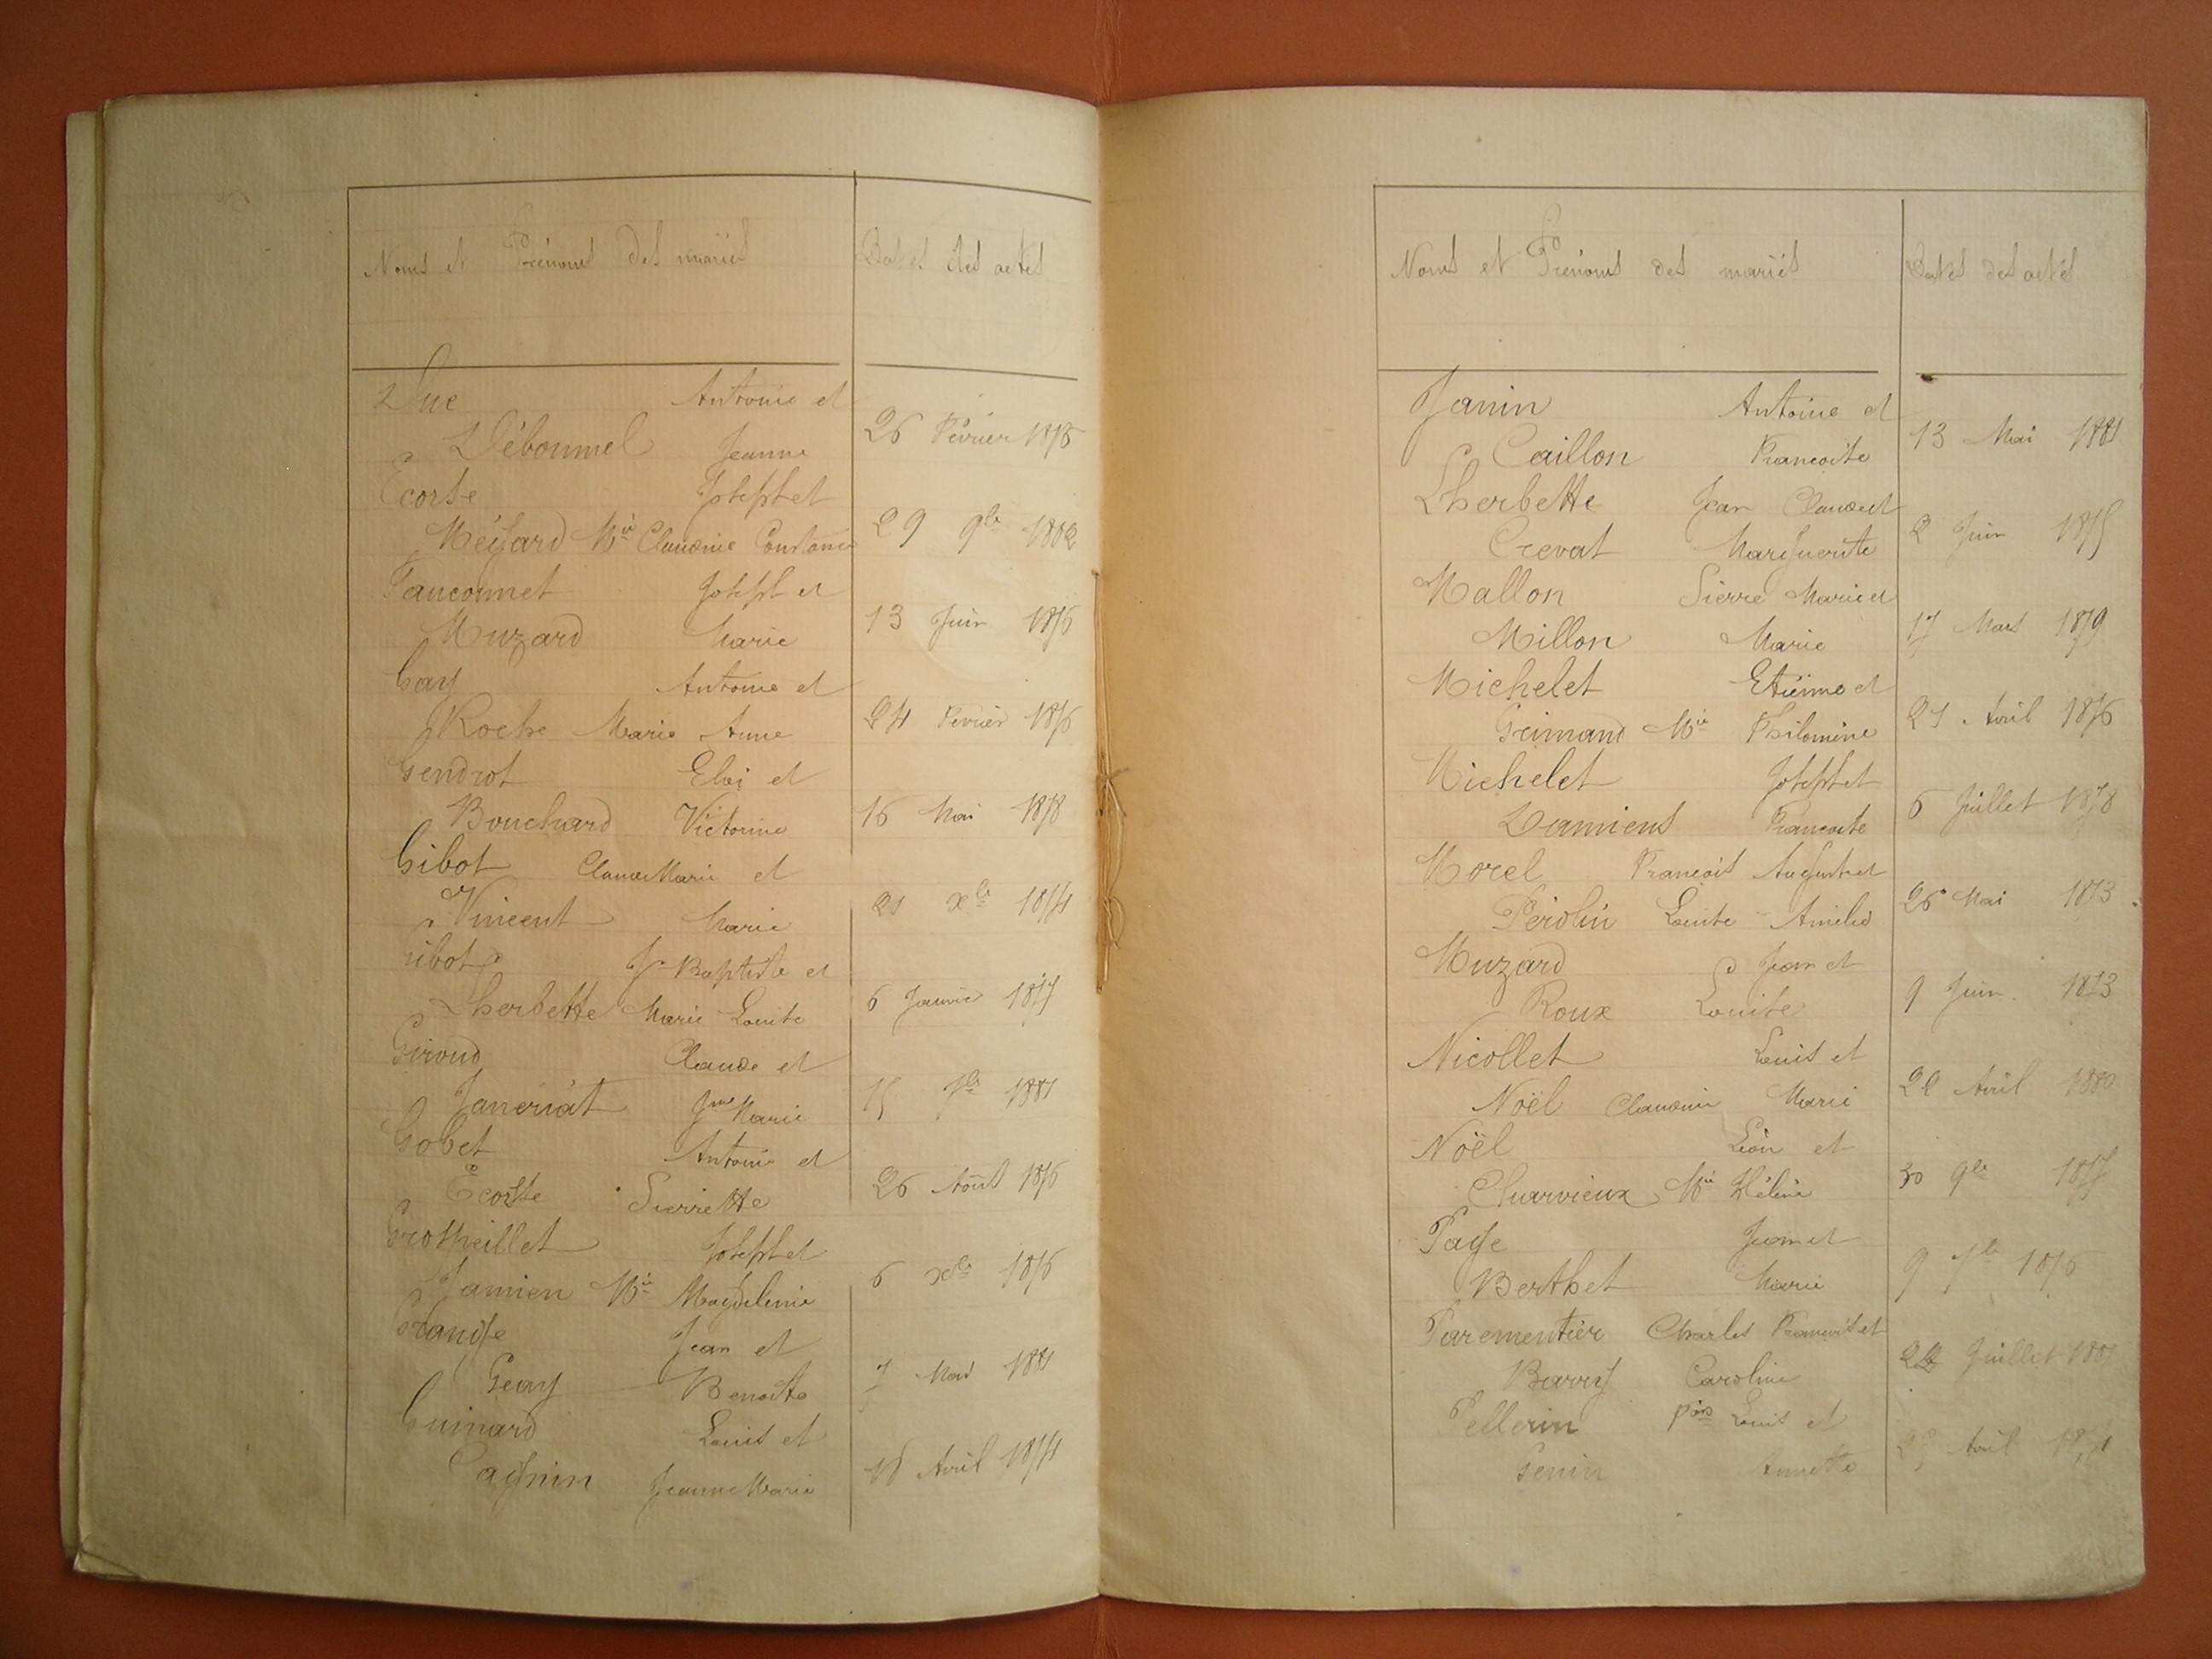 Noms et Prénoms des mariés Dates des actes
Duc Antoine et
Débonnel Jeanne 26 Février 1875
Ecorse Joseph et
Mégard Mie Claudine Constance 29 9bre 1882
Fauconnet Joseph et
Muzard Marie 13 Juin 1875
Gay Antoine et
Roche Marie Anne 24 Février 1876
Gendrot Eloi et
Bouchard Victorine 16 Mai 1878
Gibot Claude Marie et
Vincent Marie 21 Xbre 1874
Gibot J Baptiste et
Lherbette Marie Louise 6 Janvier 1877
Giroud Claude et
Janeriat Jne Marie 15 7bre 1881
Gobet Antoine et
Ecorse Pierrette 26 Août 1876
Grospeillet Joseph et
Jamien Mie Magdeleine 6 Xbre 1876
Grange Jean et
Geay Benoîte 7 Mai 1881
Guinard Louis et
Cagnin Jeanne Marie 18 Avril 1874
Noms et Prénoms des mariés Dates des actes
Janin Antoine et
Caillon Françoise 13 Mai 1881
Lherbette Jean Claude et
Crevat Marguerite 2 Juin 1875
Mallon Pierre Marie et
Millon Marie 17 Mars 1879
Michelet Etiénne et
Grimand Mie Philomène 21 Avril 1876
Michelet Joseph et
Damiens Françoise 6 Juillet 1878
Morel François August et
Pérolin Louise Amélie 26 Mai 1873
Muzard Jean et
Roux Louise 9 Juin 1873
Nicollet Louis et
Noël Claudine Marie 22 Avril 1880
Noël Léon et
Charvieux Mie Hélène 30 9bre 1877
Page Jean et
Berthet Marie 9 7bre 1876
Parementier Charles François et
Barry Caroline 22 Juillet 1881
Pellerin Fçois Louis et
Genin Annette Avril 1874